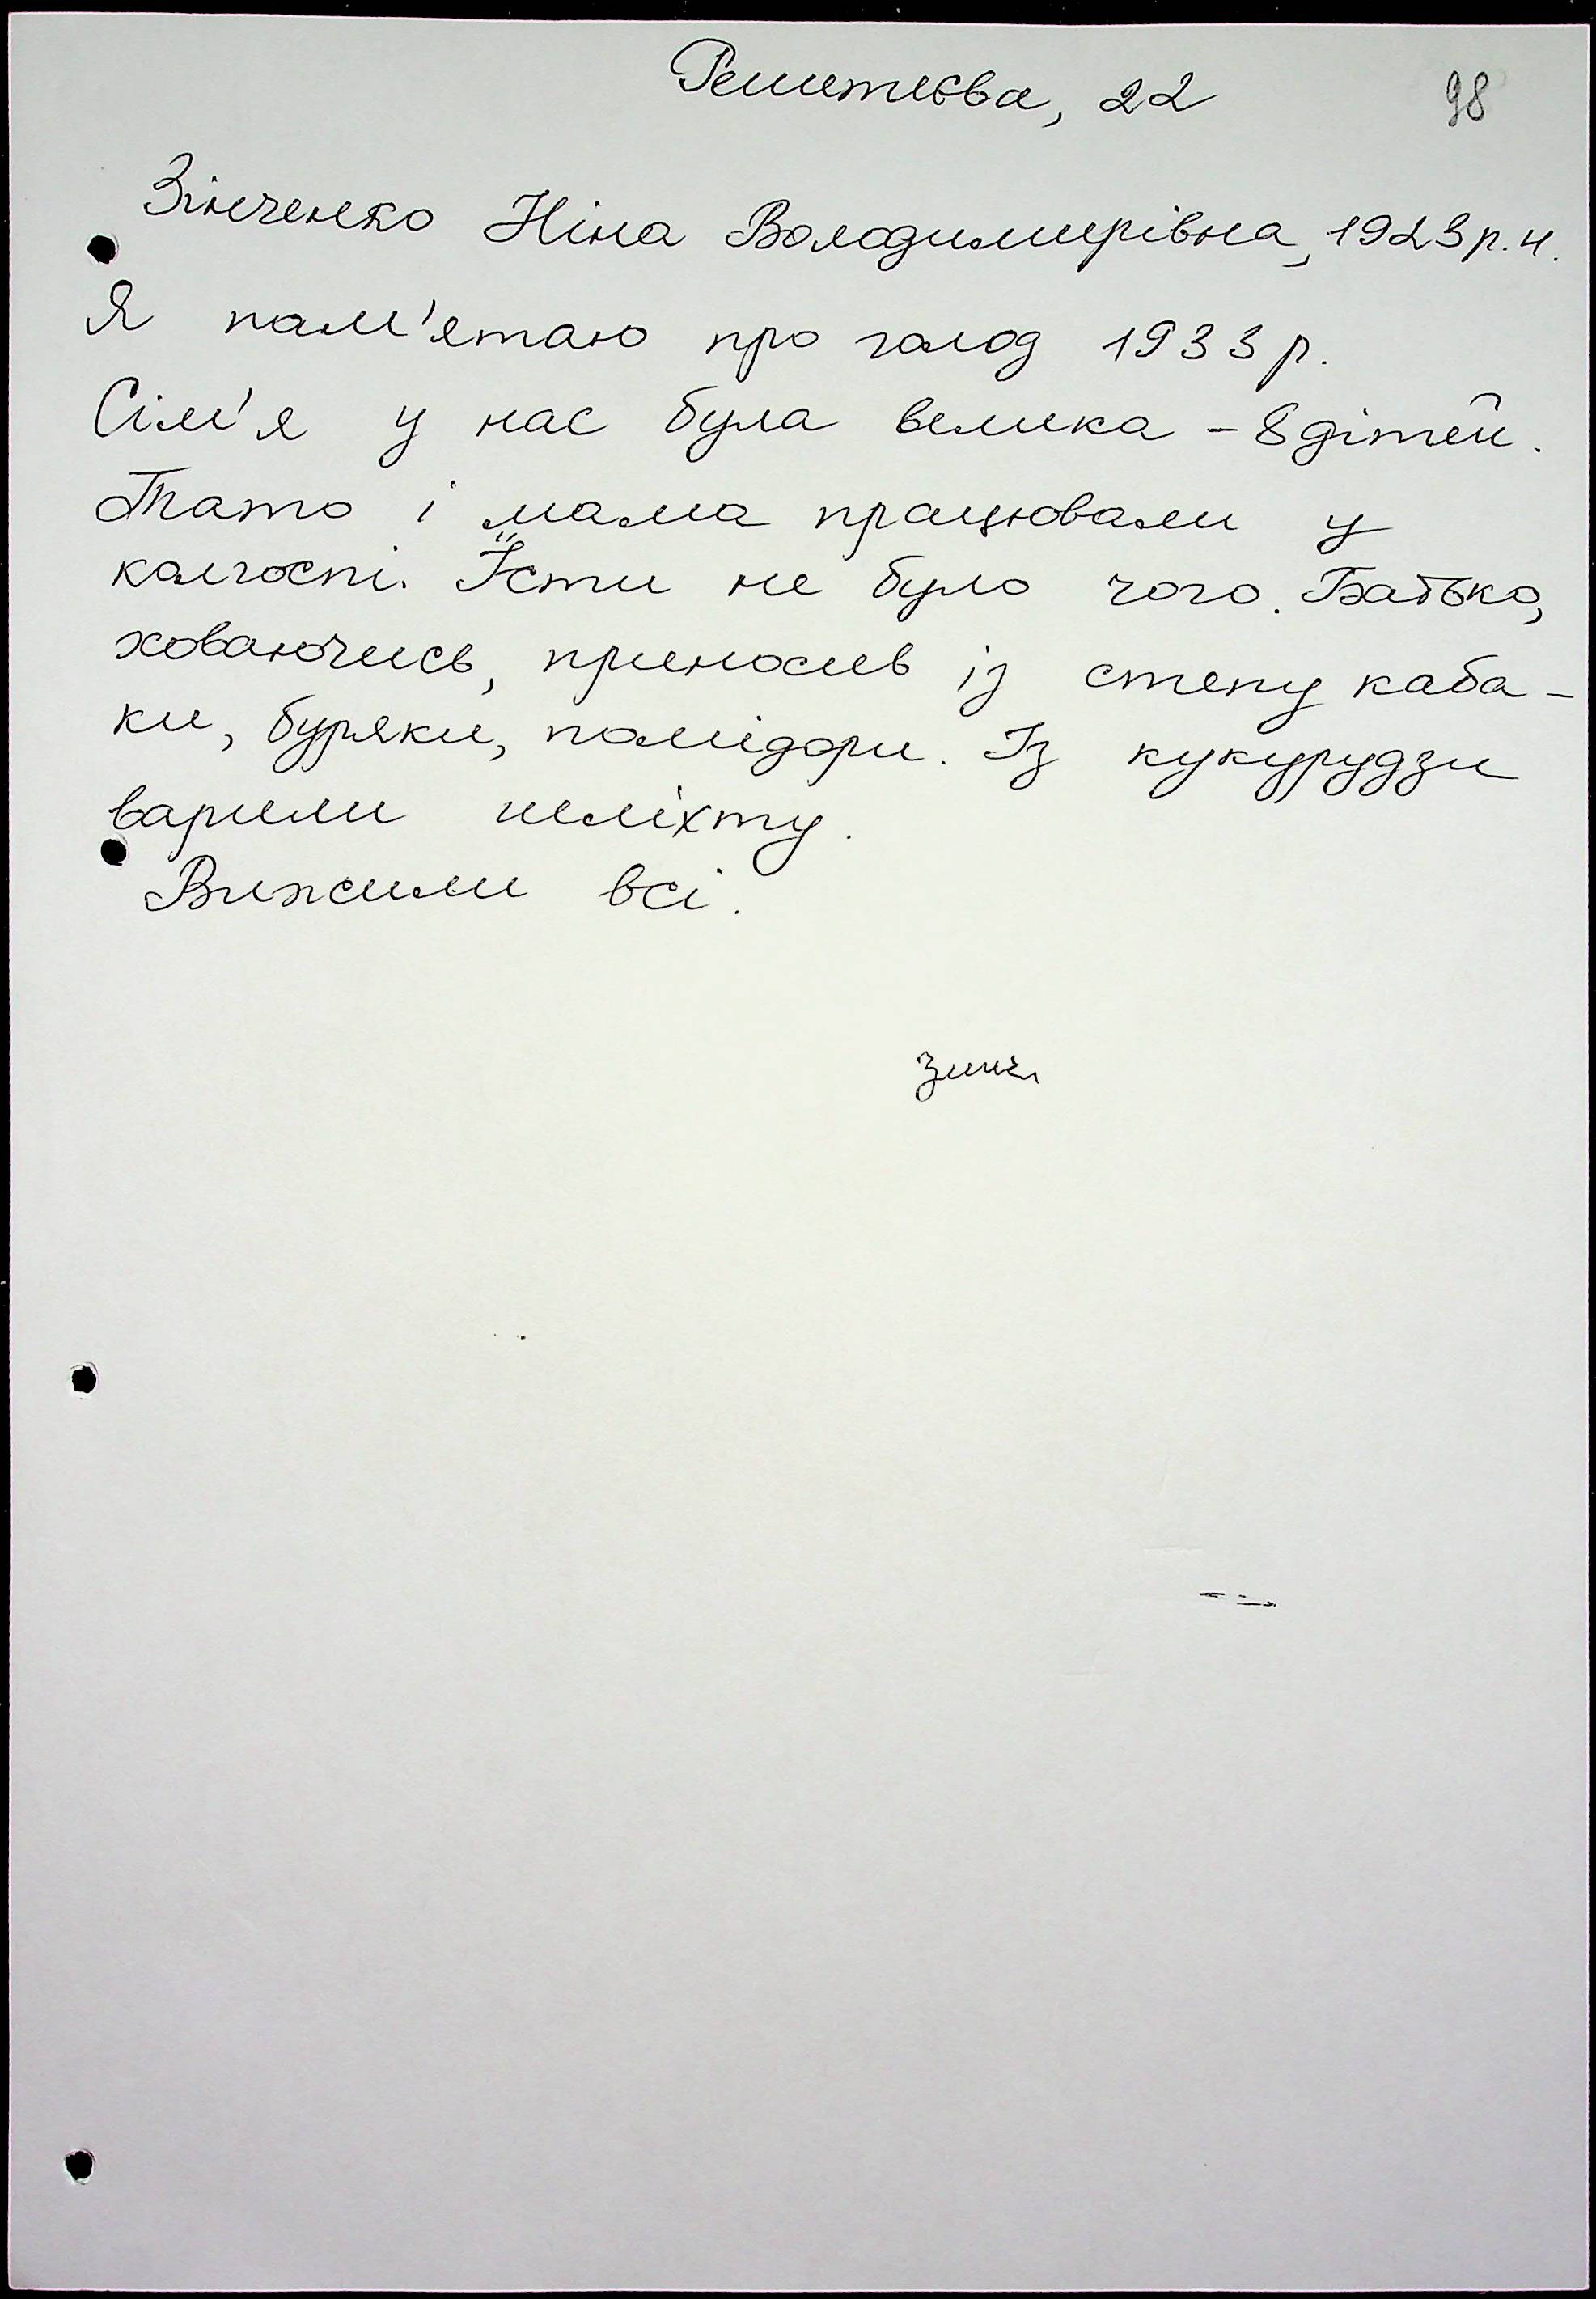 Решетнєва, 22
98
Зінченко Ніна Володимирівна, 1923 р.н.
Я пам'ятаю про голод 1933 р.
Сім'я у нас була велика - 8 дітей.
Тато і мама працювали у
колгоспі. Їсти не було чого. Батько,
ховаючись, приносив із степу каба-
ки, буряки, помідори. Із кукурудзи
варили
Вижили всі.